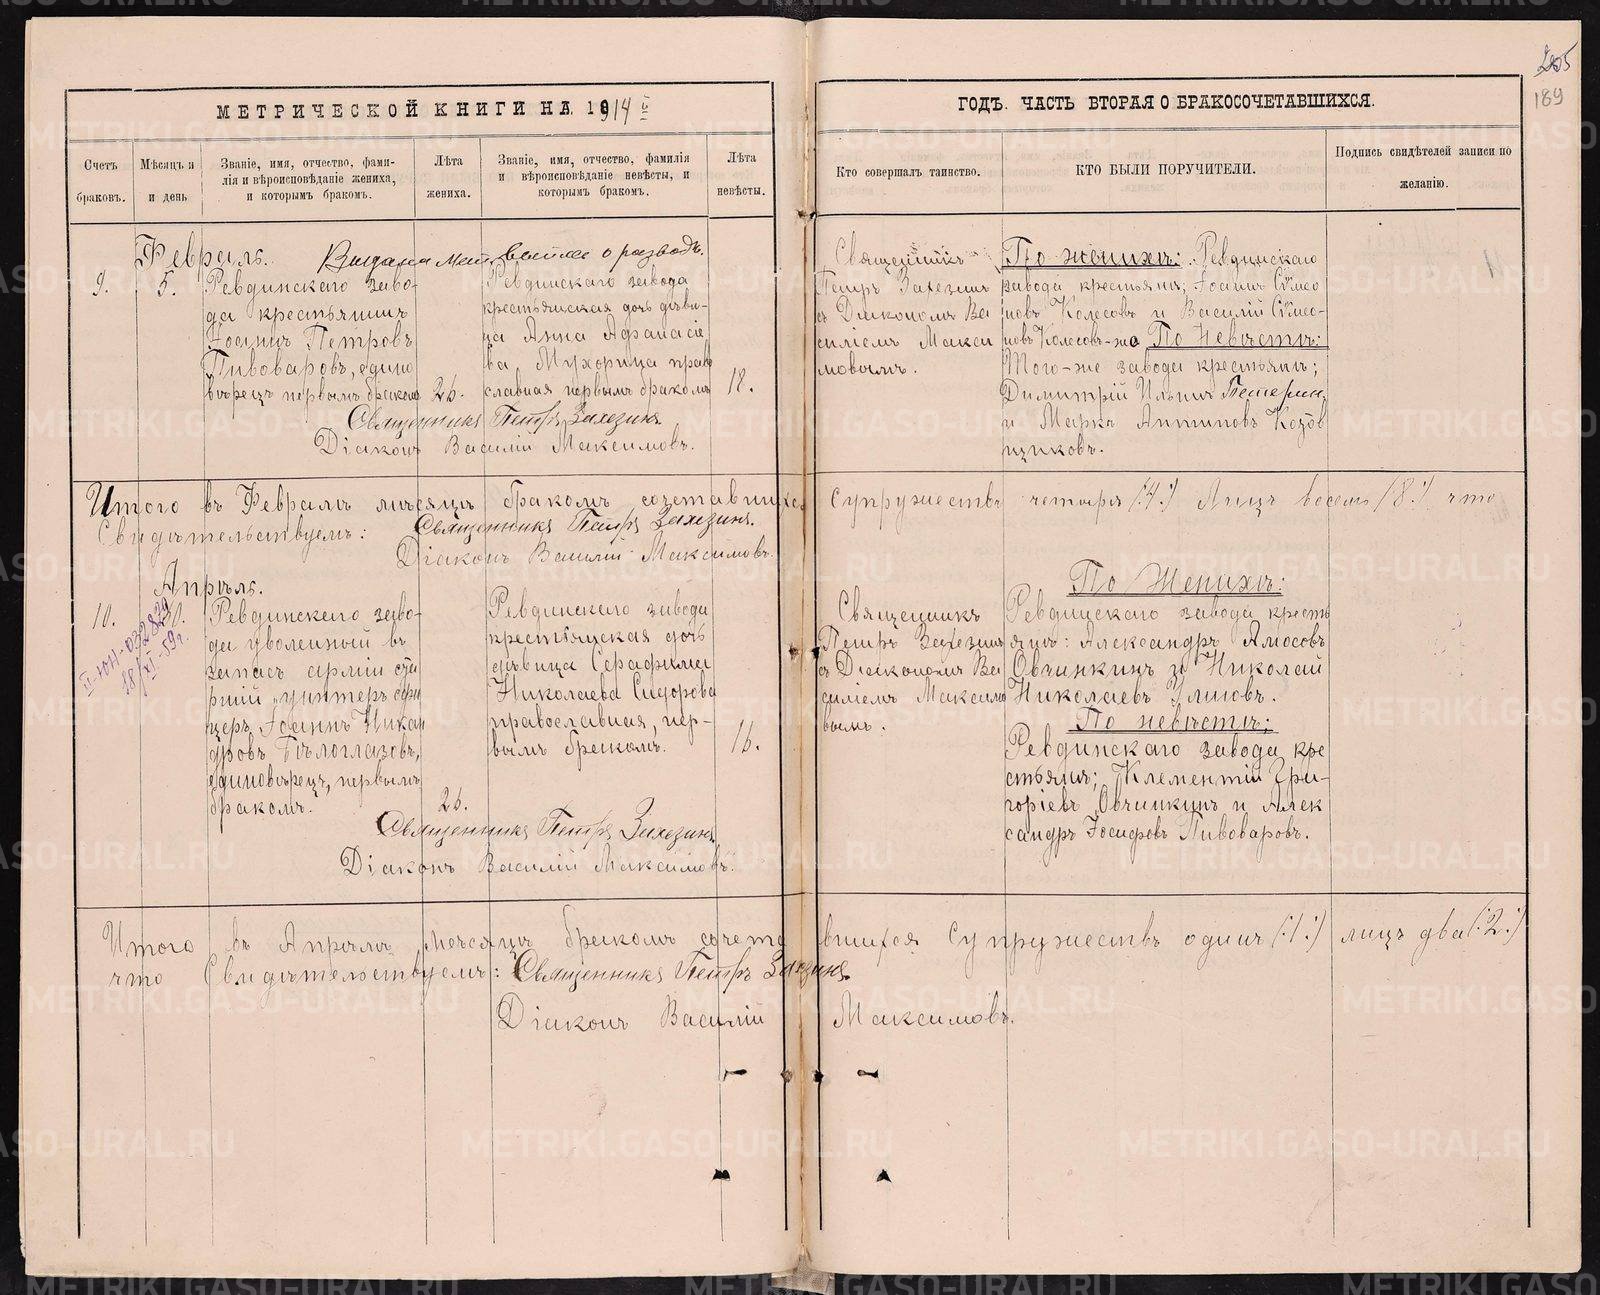 205
189
МЕТРИЧЕСКОЙ КНИГИ НА 1914 г.
ГОДЪ. ЧАСТЬ ВТОРАЯ О БРАКОСОЧЕТАВШИХСЯ.
Счетъ браковъ.
Мѣсяцъ и и день
Званіе, имя, отчество, фами-
лія и вѣроисповѣданіе жениха,
и которымъ бракомъ.
Лѣта
жениха.
Званіе, имя, отчество, фамилія
и вѣроисповѣданіе невѣсты, и
которымъ бракомъ.
Лѣта
невѣсты.
Кто совершалъ таинство.
КТО БЫЛИ ПОРУЧИТЕЛИ.
Подпись свидѣтелей записи по
желанію.
Февраль.
Выдана о разводѣ.
9.
5.
Ревдинскаго заво-
да крестьянинъ
Іоаннъ Петровъ
Пивоваровъ, едино
вѣрецъ первымъ бракомъ
26.
Ревдинскаго завода
крестьянская дочь дѣви-
ца Анна Афанасіе
ва Мухорина право
славная первымъ бракомъ
18.
Священникъ Петръ Захезинъ
Діаконъ Василій Максимовъ.
Священникъ
Петръ Захезинъ
съ Діакономъ Ва
силіемъ Макси
мовымъ.
По женихѣ: Ревдинскаго
завода крестьяне; Іоаннъ Сѵмео
новъ Колесовъ и Василій Сѵмео-
новъ Колесовъ-же По Невѣстѣ:
Того-же завода крестьяне;
Димитрій Ильинъ Петерин
и Маркъ Антиповъ Козов
щиковъ.
Итого въ Февралѣ мѣсяцѣ бракомъ сочетавшихся Супружествъ четыре (:4:) Лицъ восемь (:8:) что
Свидѣтельствуемъ: Священникъ Петръ Захезинъ.
Діаконъ Василій Максимовъ.
Апрѣль.
10.
30.
II-ЮН-032829
28/XI-59г.
Ревдинскаго заво-
да уволенный въ
запасъ арміи ста
ршій унтеръ офи
церъ, Іоаннъ Никан
дровъ Бѣлоглазовъ,
единовѣрецъ, первымъ
бракомъ.
26.
Ревдинскаго завода
крестьянская дочь
дѣвица Серафима
Николаева Сидорова
православная, пер-
вымъ бракомъ.
16.
Священникъ Петръ Захезинъ
Діаконъ Василій Максимовъ.
Священникъ
Петръ Захезинъ
съ Діакономъ Ва
силіемъ Максимо
вымъ.
По Женихѣ:
Ревдинскаго завода кресть
яне: Александръ Амосовъ
Овчинкинъ и Николай
Николаевъ Улиовъ.
По невѣстѣ:
Ревдинскаго завода кре
стьяне; Клементій Гри-
горіевъ Овчинкинъ и Алек
сандръ Іосифовъ Пивоваровъ.
Итого въ Апрѣлѣ мѣсяцѣ бракомъ сочетавшихся Супружествъ одинъ (:1:) лицъ два (:2:)
что Свидѣтельствуемъ: Священникъ Петръ Захезинъ.
Діаконъ Василій Максимовъ.
METRIKI.GASO-URAL.RU